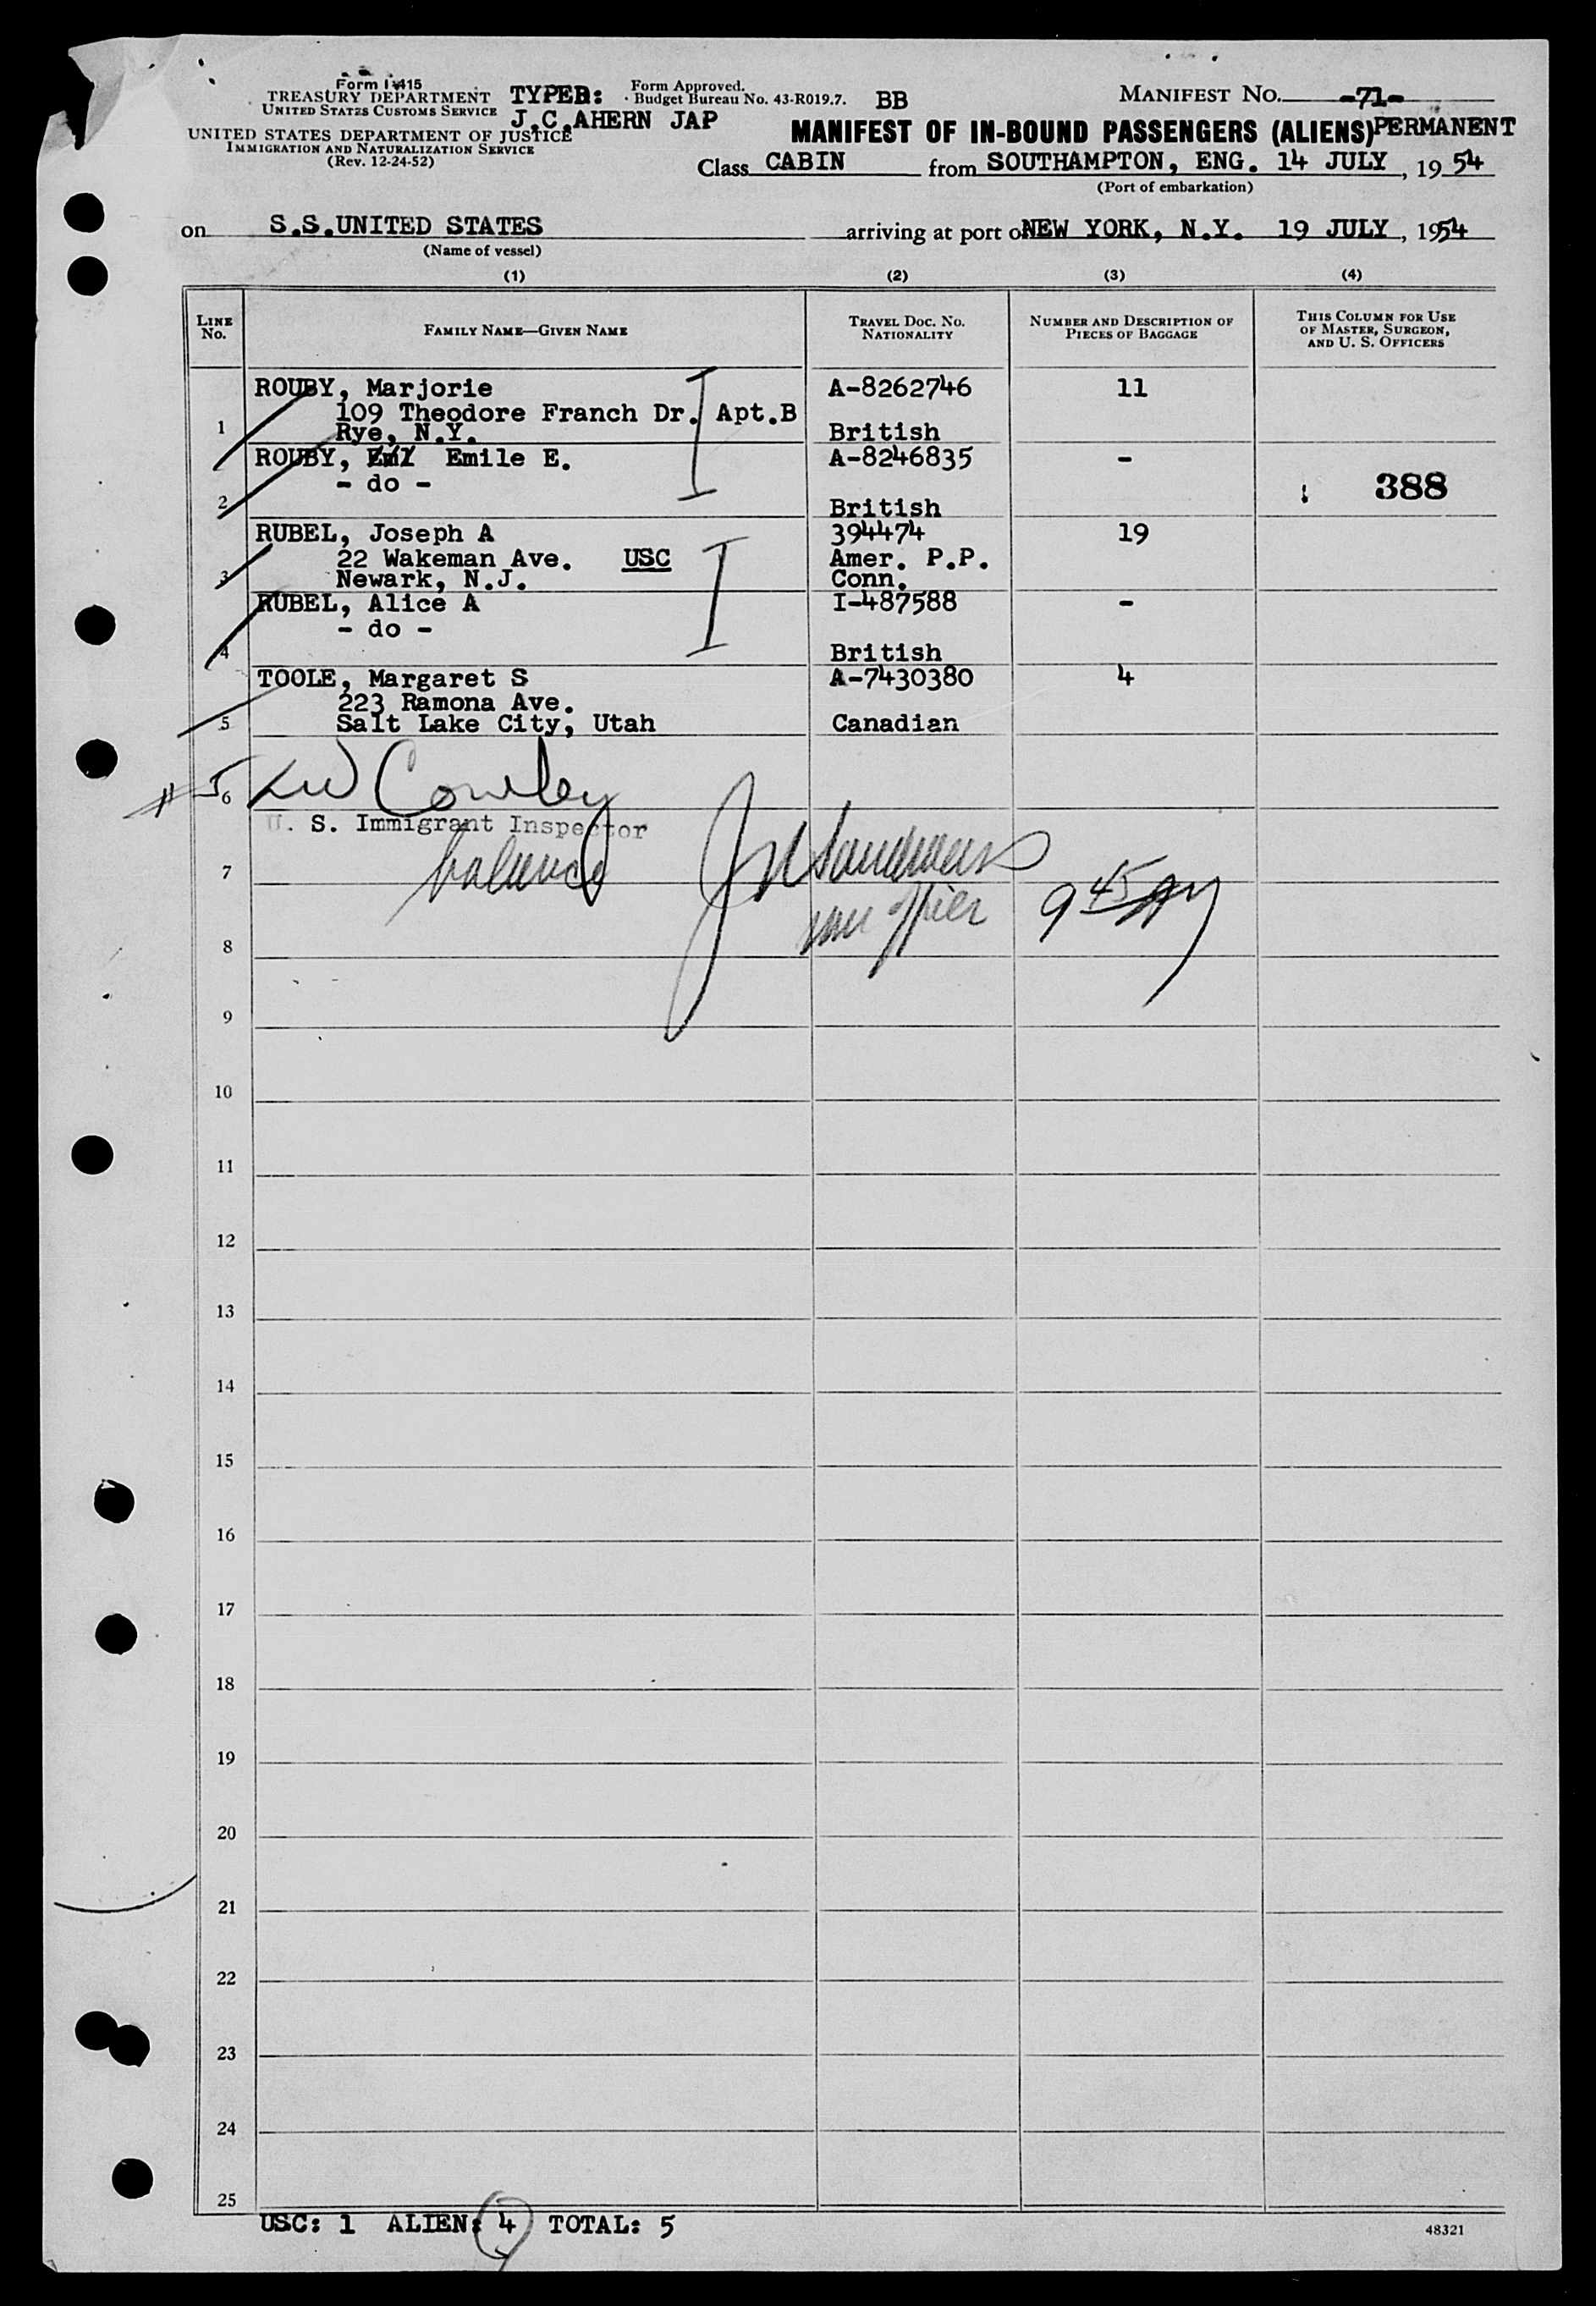 Form I-415
TREASURY DEPARTMENT
UNITED STATES CUSTOMS SERVICE
UNITED STATES DEPARTMENT OF JUSTICE
IMMIGRATION AND NATURALIZATION SERVICE
(Rev. 12-24-52)
TYPED:
J.C.AHERN JAP
Form Approved.
Budget Bureau No. 43-R019.7.
BB
MANIFEST NO. -71-
MANIFEST OF IN-BOUND PASSENGERS (ALIENS) PERMANENT
Class CABIN from SOUTHAMPTON, ENG. 14 JULY, 1954
(Port of embarkation)
on S.S.UNITED STATES arriving at port o NEW YORK, N.Y. 19 JULY, 1954
(Name of vessel)
(1) (2) (3) (4)
LINE No. FAMILY NAME—GIVEN NAME TRAVEL DOC. NO. NATIONALITY NUMBER AND DESCRIPTION OF PIECES OF BAGGAGE THIS COLUMN FOR USE OF MASTER, SURGEON, AND U. S. OFFICERS
ROUBY, Marjorie A-8262746 11
109 Theodore Franch Dr. Apt.B
1 Rye, N.Y. British
ROUBY, Eml Emile E. A-8246835 -
- do -
388
2 British
RUBEL, Joseph A 394474 19
22 Wakeman Ave. USC Amer. P.P.
3 Newark, N.J. Conn.
RUBEL, Alice A I-487588 -
- do -
4 British
TOOLE, Margaret S A-7430380 4
223 Ramona Ave.
5 Salt Lake City, Utah Canadian
#5 Cowley
6
U. S. Immigrant Inspector
7 balance
9 45
8
9
10
11
12
13
14
15
16
17
18
19
20
21
22
23
24
25
USC: 1 ALIEN: 4 TOTAL: 5
48321